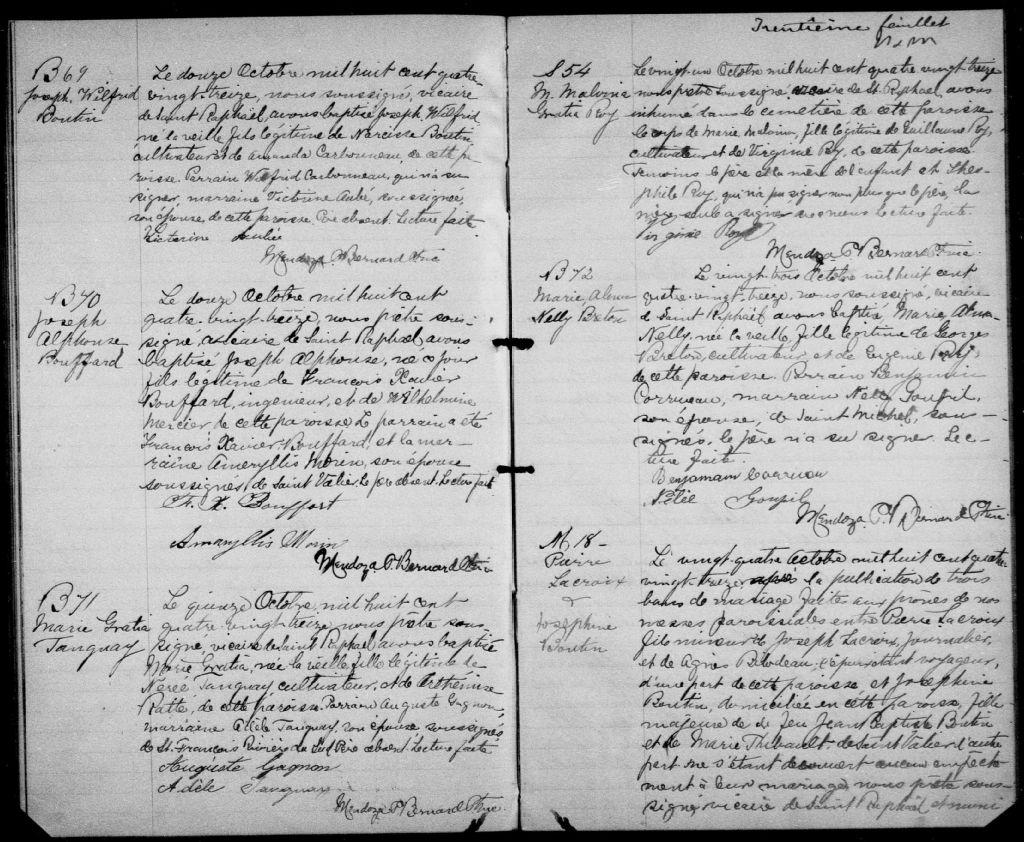 B 69
Joseph, Wilfrid
Boutin
Le douze Octobre mil huit cent quatre
vingt-treize, nous soussigné, vicaire
de Saint Raphaël, avons baptisé Joseph Wilfrid
né la veille, fils légitime de Narcisse Boutin
cultivateur et de Amanda Carbonneau, de cette pa-
roisse. Parrain Wilfrid Carbonneau, qui n'a su
signer, marraine Victorine Aubé, soussignée,
son épouse de cette paroisse. Père absent. Lecture faite
Victorine
Mendoza P. Bernard Ptre
B 70
Joseph
Alphonse
Bouffard
Le douze Octobre mil huit cent
quatre-vingt-treize, nous prêtre sous-
signé, vicaire de Saint Raphaël avons
baptisé Joseph Alphonse, né ce jour
fils légitime de François Xavier
Bouffard, ingenieur, et de Wilhelmine
Mercier de cette paroisse. Le parrain a été
François Xavier Bouffard, et la mar-
raine Ameryllis Morin, son épouse
soussignés, de Saint Valier. Le père absent. Lecture faite
F. X. Bouffart
Amaryllis Morin
Mendoza P. Bernard Ptre
B 71
Marie Gratia
Tanguay
Le quinze Octobre, mil huit cent
quatre-vingt-treize, nous prêtre sous
signé, vicaire de Saint Raphaël avons baptisé
Marie Gratia, née la veille, fille légitime de
Nereé Tanguay cultivateur, et de Arthémise
Ratté, de cette paroisse. Parrain Auguste Gagnon,
marraine Adèle Tanguay, son épouse soussignés
de St. François Rivière du Sud. Père absent. Lecture faite
Auguste Gagnon
Adèle Tanguay
Mendoza P. Bernard Ptre.
Trentième feuillet
S 54
M. Malvina
Gratia Roy
Le vingt-un Octobre mil huit cent quatre vingt-treize
nous prêtre soussigné vicaire de St. Raphaël, avons
inhumé dans le cemetière de cette paroisse
le corps de Marie Malvina, fille légitime de Guillaume Roy,
cultivateur et de Virginie Roy, de cette paroisse.
Temoins le père et la mère de l'enfant et Theo-
phile Roy, qui n'a pu signer non plus que le père, la
mère seule a signé avec nous Lecture faite.
Virginie Roy
Mendoza P. Bernard Ptre.
B 72
Marie, Alma
Nelly Breton
Le vingt-trois Octobre mil huit cent
quatre-vingt-treize, nous soussigné, vicaire
de Saint Raphaël avons baptisé Marie Alma
Nelly, née la veille, fille légitime de Georges
Breton, cultivateur, et de Eugenie Roy,
de cette paroisse. Parrain Benjamin
Corriveau, marraine Nelly Goupil,
son épouse, de Saint Michel, sous-
signés, le père n'a su signer. Lec-
ture faite.
Benjamain Corriveau
Goupil
Mendoza P. Bernard Ptre.
M 18-
Pierre
Lacroix
&
Joséphine
Boutin
Le vingt-quatre Octobre mil huit cent quatre
vingt-treize après la publication de trois
bans de mariage faite aux prônes de nos
messes paroissiales entre Pierre Lacroix
fils mineur de Joseph Lacroix, Journalier,
et de Agnes Bilodeau, voyageur,
d'une part de cette paroisse et Joséphine
Boutin, domiciliée en cette paroisse, fille
majeure de de feu Jean Baptiste Boutin
et de Marie Thibault de Saint Valier d'autre
part ne s'étant découvert aucun empêche-
ment à leur mariage, nous prêtre sous-
signé, vicaire de Saint Raphaël et muni